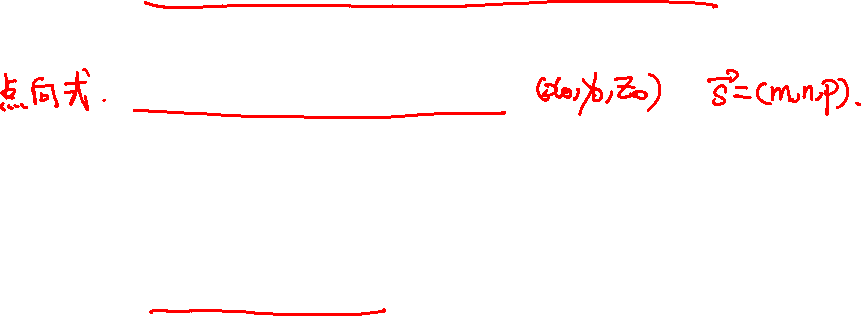 点向式. (x₀,y₀,z₀) s⃗=(m,n,p).